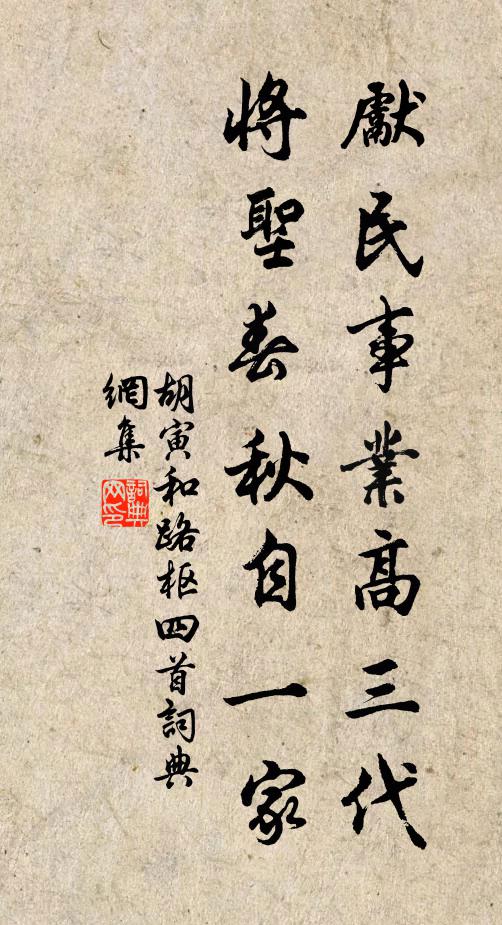 獻民事業高三代
將聖春秋自一家
胡寅和路枢四首詞典
網集
詞典
网印